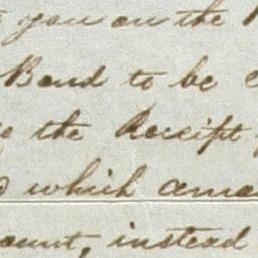 you on the
Bond to be
the Receipt
which amo
ount, instead